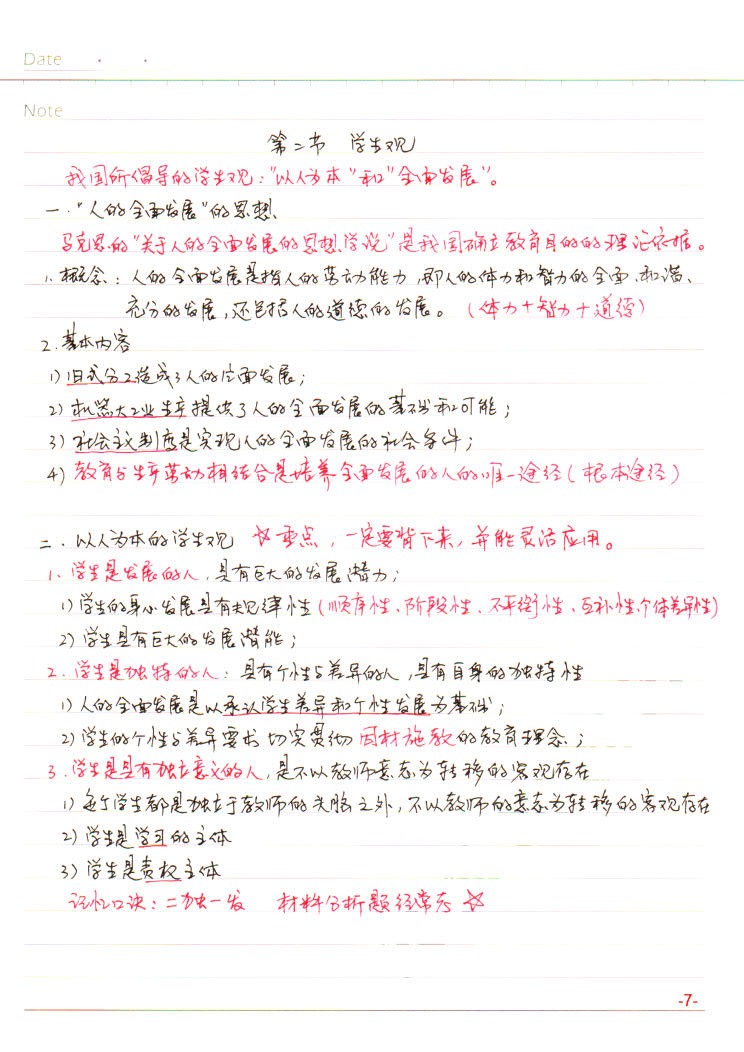 Date
Note
第二节 学生观
我国所倡导的学生观："以人为本"和"全面发展"。
一."人的全面发展"的思想、
马克思的"关于人的全面发展的思想学说"是我国确立教育目的的理论依据。
1. 概念：人的全面发展是指人的劳动能力,即人的体力和智力的全面、和谐、
充分的发展,还包括人的道德的发展。(体力+智力+道德)
2.基本内容
1)旧式分工造成了人的片面发展;
2)机器大工业生产提供了人的全面发展的基础和可能;
3)社会主义制度是实现人的全面发展的社会条件;
4)教育与生产劳动相结合是培养全面发展的人的唯一途径(根本途径)
二.以人为本的学生观 ☆重点,一定要背下来,并能灵活应用。
1、学生是发展的人,具有巨大的发展潜力;
1)学生的身心发展具有规律性(顺序性、阶段性、不平衡性、互补性、个体差异性)
2)学生具有巨大的发展潜能;
2.学生是独特的人：具有个性与差异的人,具有自身的独特性
1)人的全面发展是以承认学生差异和个性发展为基础;
2)学生的个性与差异要求切实贯彻因材施教的教育理念;
3.学生是具有独立意义的人,是不以教师意志为转移的客观存在
1)每个学生都是独立于教师的头脑之外,不以教师的意志为转移的客观存在
2)学生是学习的主体
3)学生是责权主体
记忆口诀：二独一发 材料分析题经常考 ☆
-7-